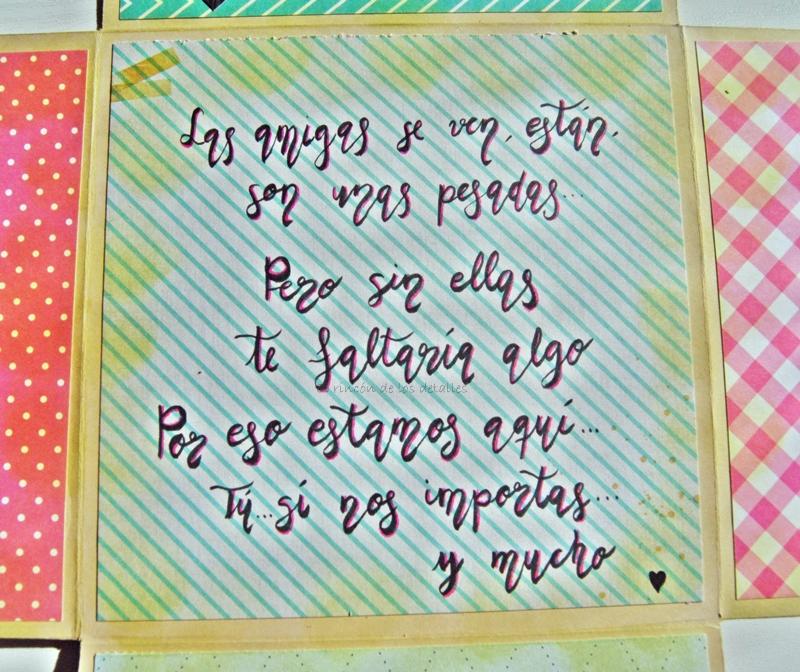 Las amigas se ven, están,
son unas pesadas...
Pero sin ellas
te faltaría algo
el rincón de los detalles
Por eso estamos aquí...
Tú...sí nos importas...
y mucho